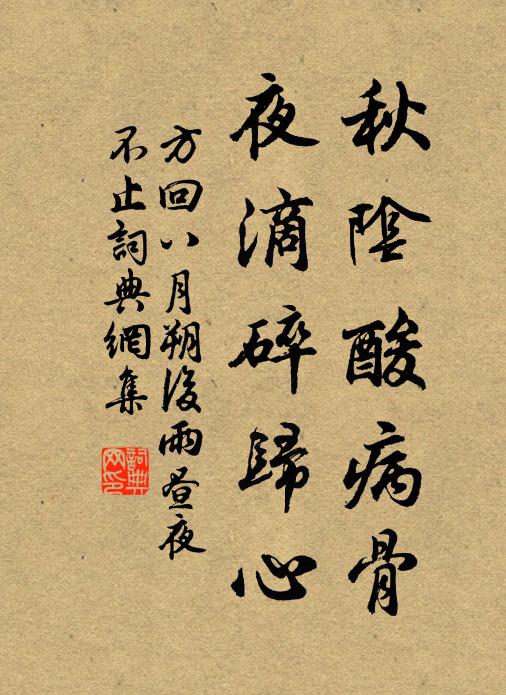 秋陰酸病骨
夜滴碎歸心
方回八月朔後雨晝夜
不止詞典網集
詞典
网印